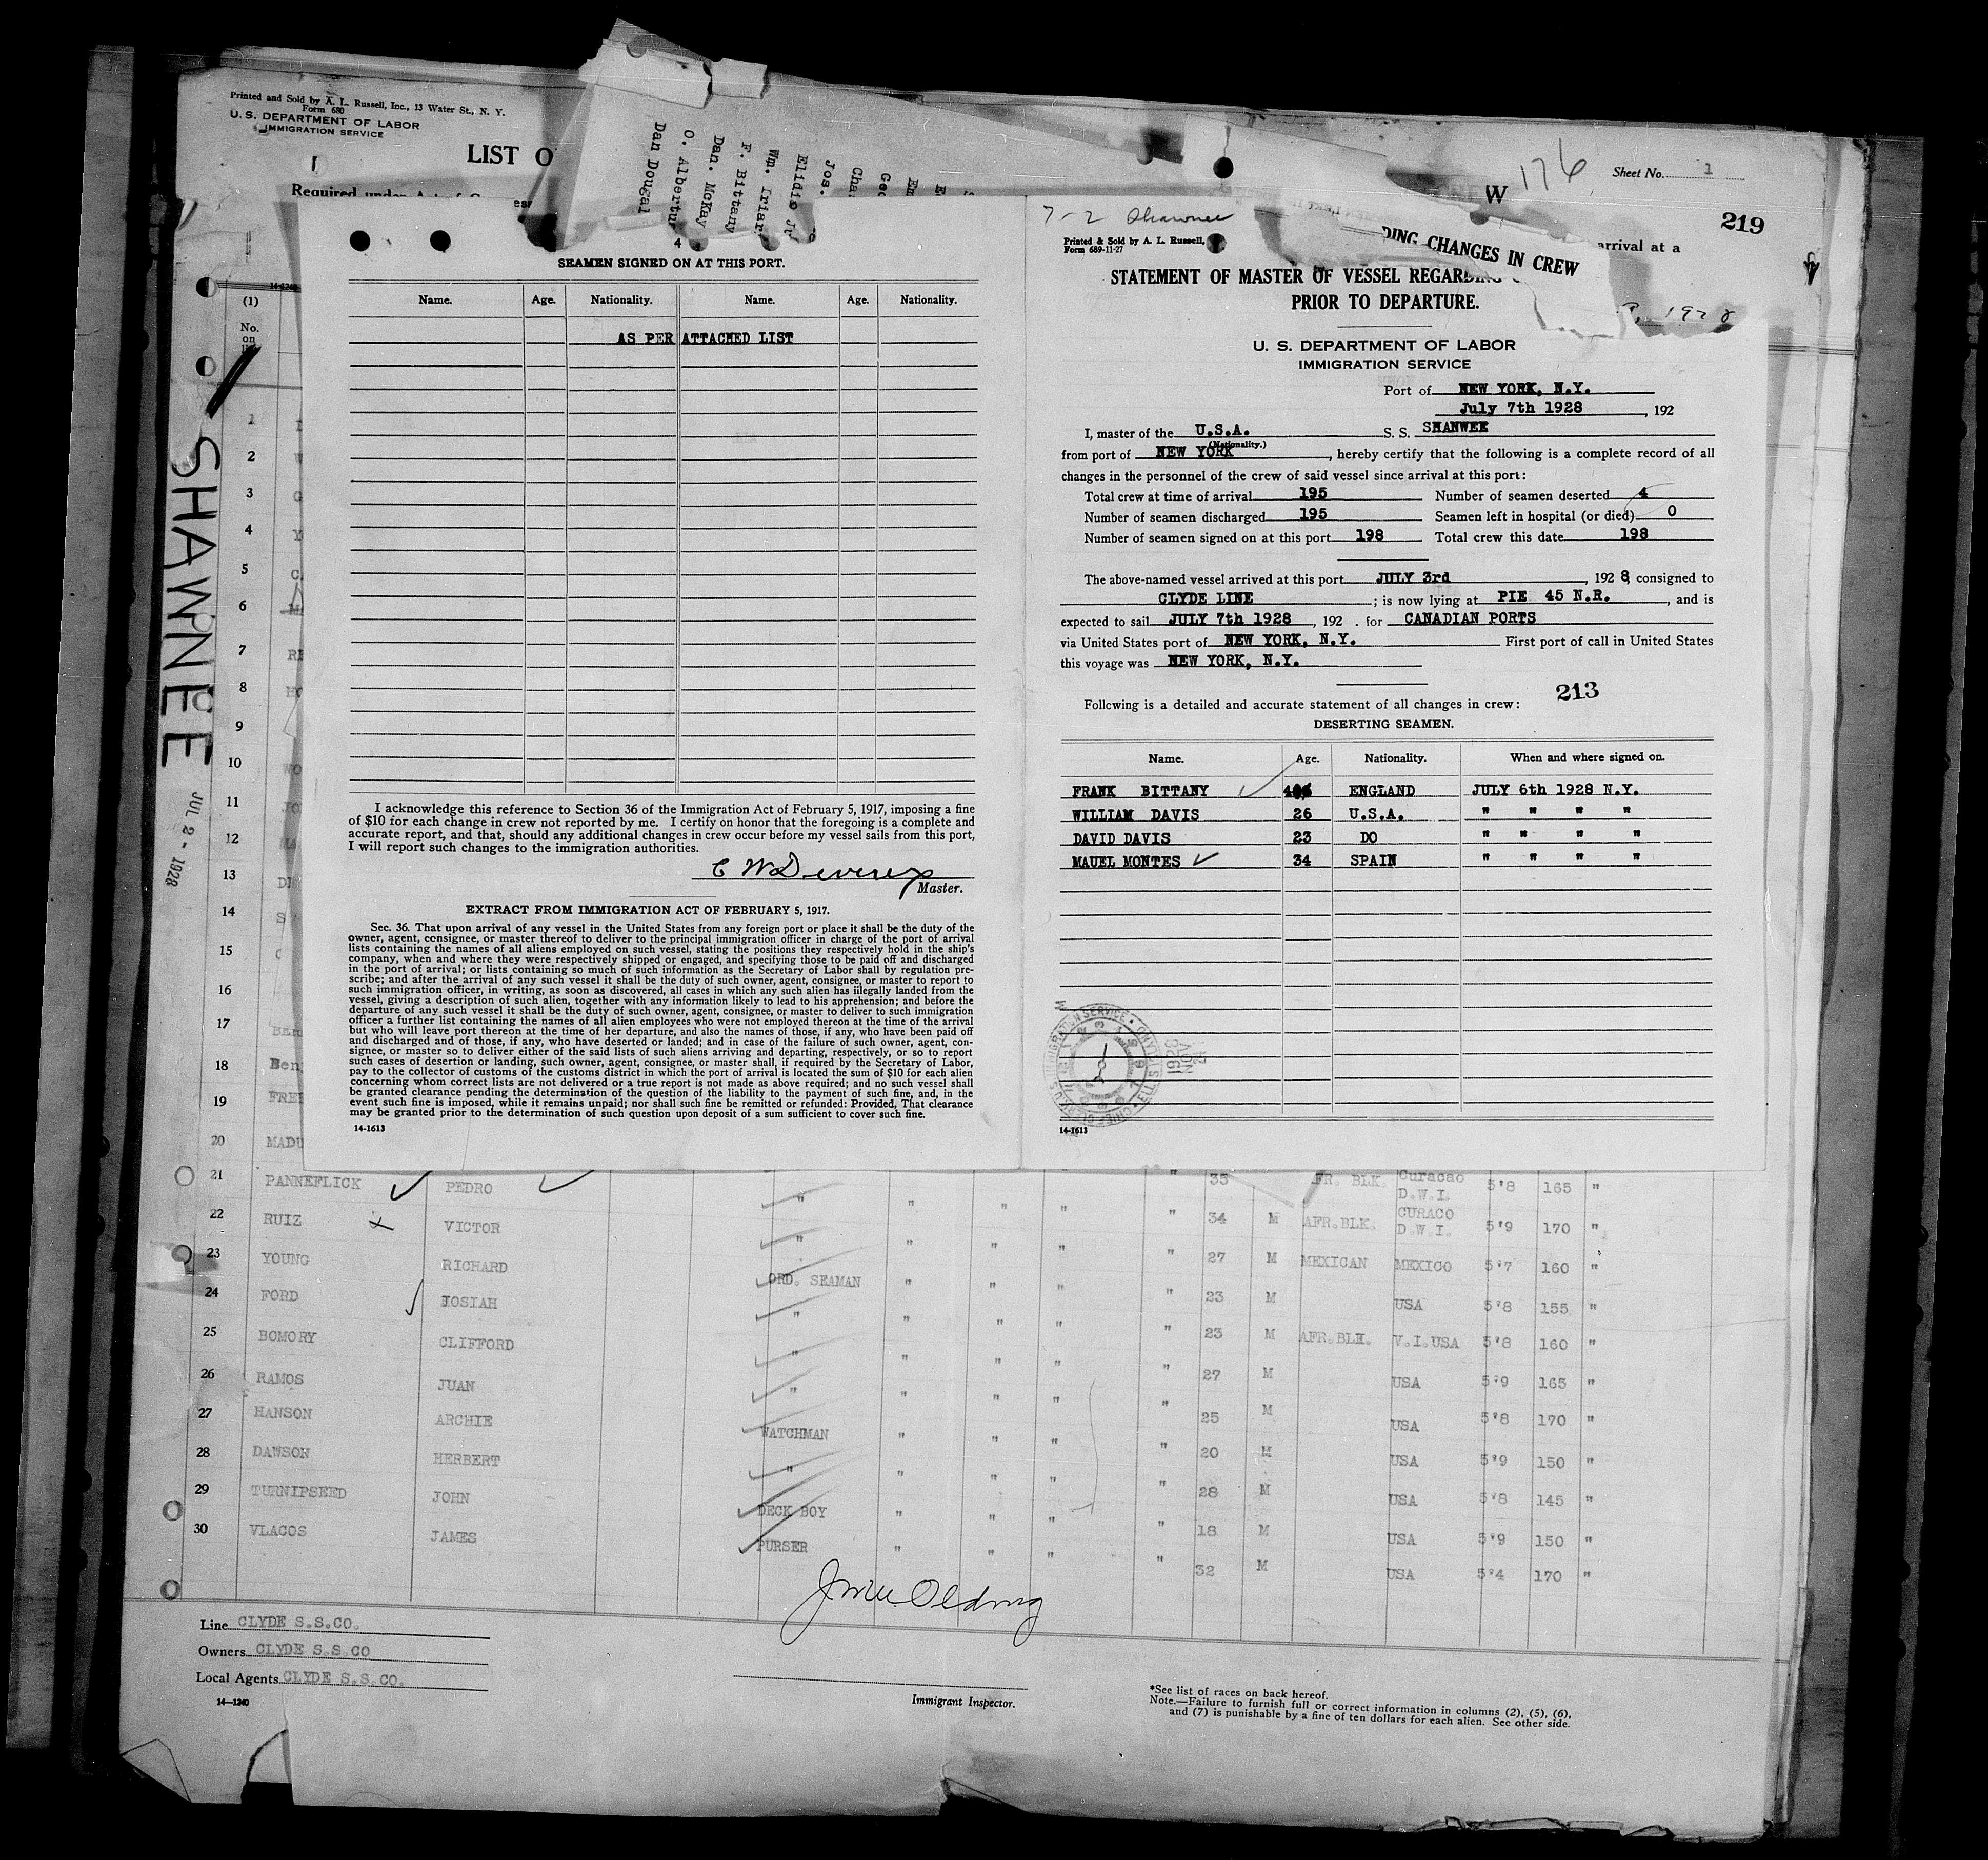 Printed and Sold by A. L. Russell, Inc., 13 Water St., N. Y.
Form 680
U. S. DEPARTMENT OF LABOR
IMMIGRATION SERVICE
LIST O
Required under Act of
Dan Dougal
O. Albertu
Dan. McKay
F. Bittany
Wm. Iriar
Elidio Jr
Jos.
Cha
Geo
Em
E
W
176
Sheet No. 1
219
arrival at a
14-1240
(1)
No.
on
SHAWNEE
JUL 2 - 1928
4
SEAMEN SIGNED ON AT THIS PORT.
Name. Age. Nationality. Name. Age. Nationality.
AS PER ATTACHED LIST
I acknowledge this reference to Section 36 of the Immigration Act of February 5, 1917, imposing a fine
of $10 for each change in crew not reported by me. I certify on honor that the foregoing is a complete and
accurate report, and that, should any additional changes in crew occur before my vessel sails from this port,
I will report such changes to the immigration authorities.
Master.
EXTRACT FROM IMMIGRATION ACT OF FEBRUARY 5, 1917.
Sec. 36. That upon arrival of any vessel in the United States from any foreign port or place it shall be the duty of the
owner, agent, consignee, or master thereof to deliver to the principal immigration officer in charge of the port of arrival
lists containing the names of all aliens employed on such vessel, stating the positions they respectively hold in the ship's
company, when and where they were respectively shipped or engaged, and specifying those to be paid off and discharged
in the port of arrival; or lists containing so much of such information as the Secretary of Labor shall by regulation pre-
scribe; and after the arrival of any such vessel it shall be the duty of such owner, agent, consignee, or master to report to
such immigration officer, in writing, as soon as discovered, all cases in which any such alien has illegally landed from the
vessel, giving a description of such alien, together with any information likely to lead to his apprehension; and before the
departure of any such vessel it shall be the duty of such owner, agent, consignee, or master to deliver to such immigration
officer a further list containing the names of all alien employees who were not employed thereon at the time of the arrival
but who will leave port thereon at the time of her departure, and also the names of those, if any, who have been paid off
and discharged and of those, if any, who have deserted or landed; and in case of the failure of such owner, agent, con-
signee, or master so to deliver either of the said lists of such aliens arriving and departing, respectively, or so to report
such cases of desertion or landing, such owner, agent, consignee, or master shall, if required by the Secretary of Labor,
pay to the collector of customs of the customs district in which the port of arrival is located the sum of $10 for each alien
concerning whom correct lists are not delivered or a true report is not made as above required; and no such vessel shall
be granted clearance pending the determination of the question of the liability to the payment of such fine, and, in the
event such fine is imposed, while it remains unpaid; nor shall such fine be remitted or refunded: Provided, That clearance
may be granted prior to the determination of such question upon deposit of a sum sufficient to cover such fine.
14-1613
7-2 Shawnee
Printed & Sold by A. L. Russell,
Form 689-11-27
DING CHANGES IN CREW
STATEMENT OF MASTER OF VESSEL REGARDING
PRIOR TO DEPARTURE.
U. S. DEPARTMENT OF LABOR
IMMIGRATION SERVICE
Port of NEW YORK, N.Y.
July 7th 1928, 192
I, master of the U.S.A. S. S. SHANWEE
(Nationality.)
from port of NEW YORK, hereby certify that the following is a complete record of all
changes in the personnel of the crew of said vessel since arrival at this port:
Total crew at time of arrival 195 Number of seamen deserted 4
Number of seamen discharged 195 Seamen left in hospital (or died) 0
Number of seamen signed on at this port 198 Total crew this date 198
The above-named vessel arrived at this port JULY 3rd, 1928, consigned to
CLYDE LINE; is now lying at PIE 45 N.R., and is
expected to sail JULY 7th 1928, 192 . for CANADIAN PORTS
via United States port of NEW YORK, N.Y. First port of call in United States
this voyage was NEW YORK, N.Y.
213
Following is a detailed and accurate statement of all changes in crew:
DESERTING SEAMEN.
Name. Age. Nationality. When and where signed on.
FRANK BITTANY ENGLAND JULY 6th 1928 N.Y.
WILLIAM DAVIS 26 U.S.A. " " " "
DAVID DAVIS 23 DO " " " "
MAUEL MONTES 34 SPAIN " " " "
14-1613
1
2
3
4
5
6
7
8
9
10
11
12
13
14
15
16
17
18 Ben
19 FREE
20 MADU
21 PANNEFLICK PEDRO " " " " " 35 AFR. BLK. Curacao D.W.I. 5'8 165 "
22 RUIZ VICTOR " " " " " 34 M AFR.BLK. CURACO D.W.I. 5'9 170 "
23 YOUNG RICHARD ORD. SEAMAN " " " " 27 M MEXICAN MEXICO 5'7 160 "
24 FORD JOSIAH " " " " " 23 M USA 5'8 155 "
25 BOMORY CLIFFORD " " " " " 23 M AFR.BLK. V.I.USA 5'8 160 "
26 RAMOS JUAN " " " " " 27 M USA 5'9 165 "
27 HANSON ARCHIE WATCHMAN " " " " 25 M USA 5'8 170 "
28 DAWSON HERBERT " " " " " 20 M USA 5'9 150 "
29 TURNIPSEED JOHN DECK BOY " " " " 28 M USA 5'8 145 "
30 VLACOS JAMES PURSER " " " " 18 M USA 5'9 150 "
32 M USA 5'4 170 "
Line CLYDE S.S.CO.
Owners CLYDE S.S.CO
Local Agents CLYDE S.S.CO.
14-1240
Immigrant Inspector.
*See list of races on back hereof.
Note.—Failure to furnish full or correct information in columns (2), (5), (6),
and (7) is punishable by a fine of ten dollars for each alien. See other side.